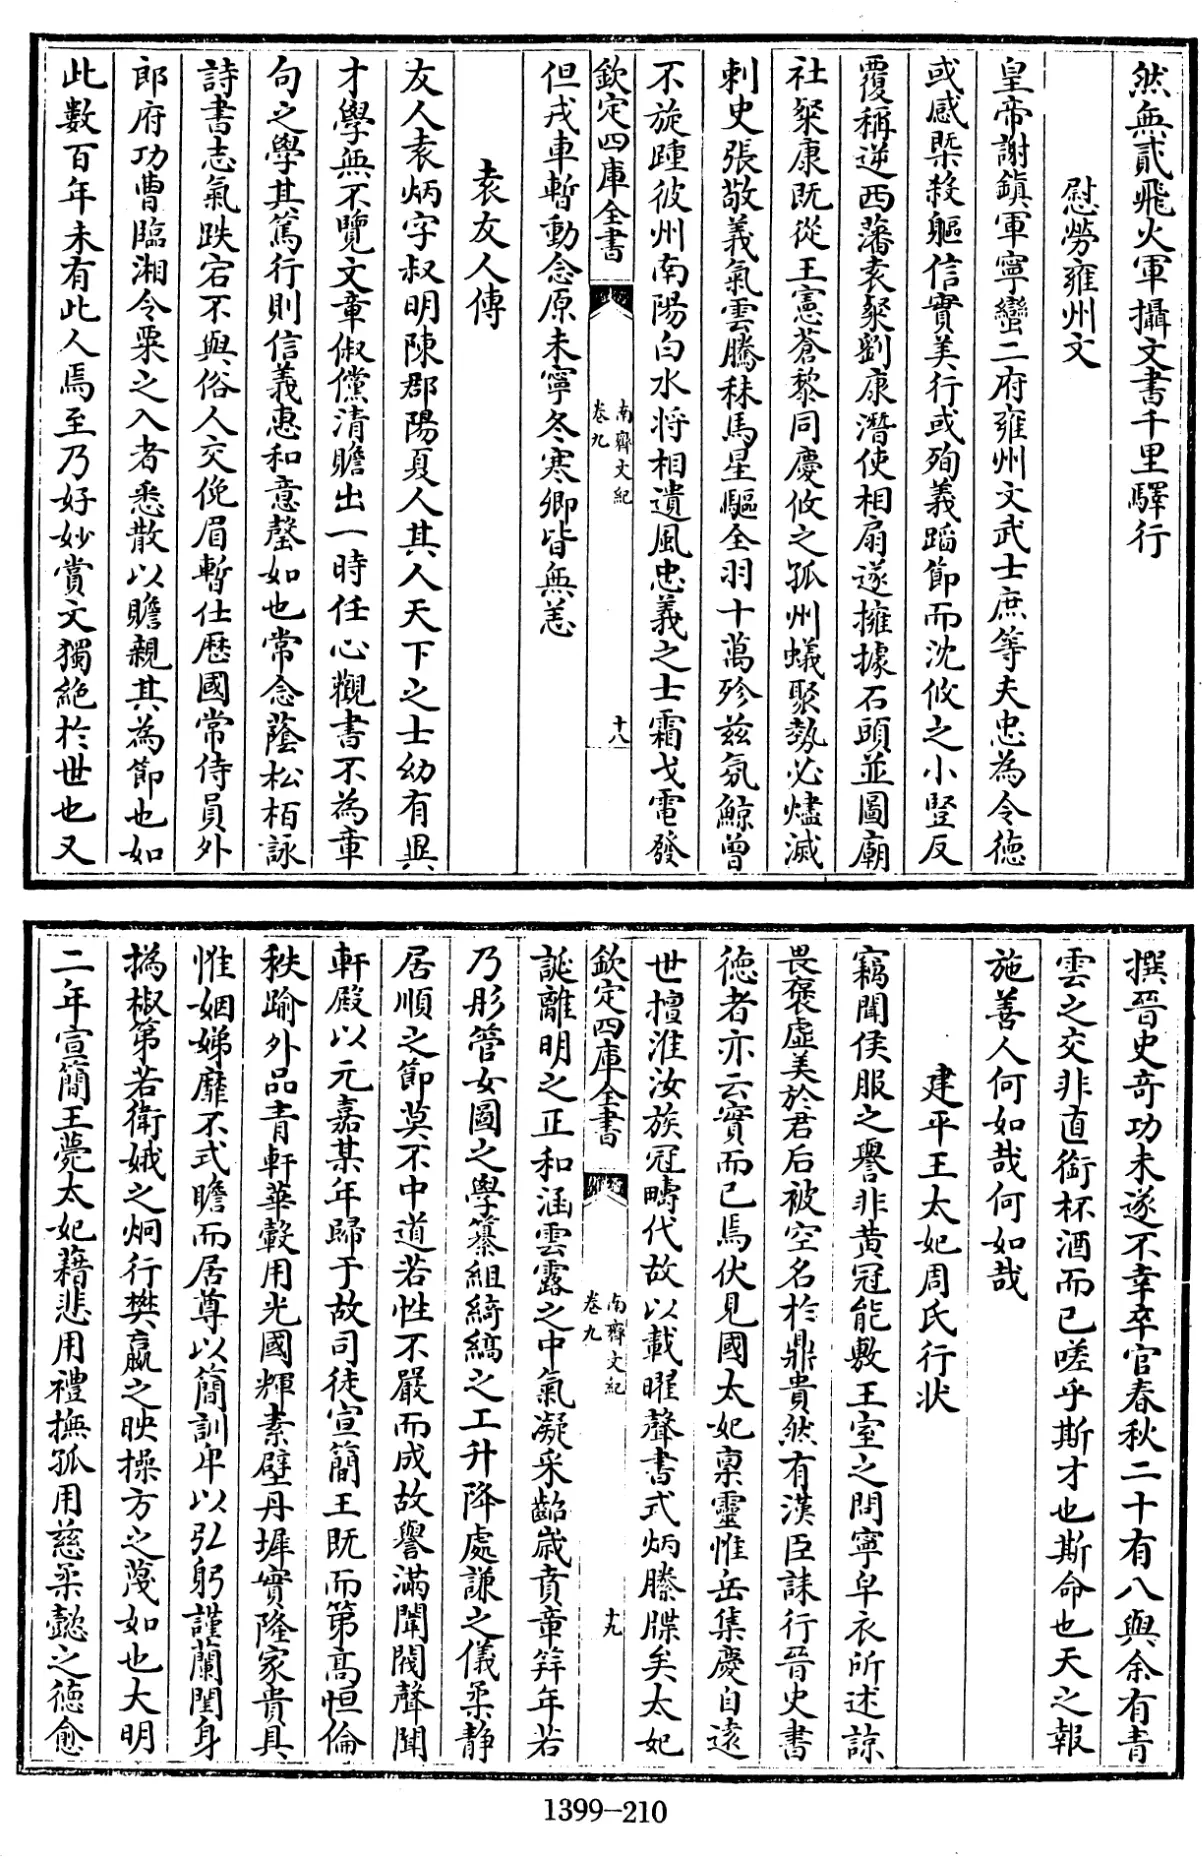 然無貳飛火軍攝文書千里驛行
慰勞雍州文
皇帝謝鎮軍寧蠻二府雍州文武士庶等夫忠為令德
或感槩殺軀信實美行或殉義蹈節而沈攸之小豎反
覆稱逆西藩袁粲劉康潛使相扇遂擁據石頭並圖廟
社粲康既從王憲蒼黎同慶攸之孤州蟻聚勢必燼滅
刺史張敬義氣雲騰秣馬星驅全羽十萬殄兹氛鯨曾
不旋踵彼州南陽白水將相遺風忠義之士霜戈電發
欽定四庫全書
南齊文紀
卷九
十八
但戎車暫動念原未寧冬寒卿皆無恙
袁友人傳
友人袁炳字叔明陳郡陽夏人其人天下之士幼有異
才學無不覽文章俶儻清贍出一時任心觀書不為章
句之學其篤行則信義惠和意罄如也常念蔭松栢詠
詩書志氣跌宕不與俗人交俛眉暫仕歷國常侍員外
郎府功曹臨湘令粟之入者悉散以贍親其為節也如
此數百年未有此人焉至乃好妙賞文獨絶於世也又
撰晉史竒功未遂不幸卒官春秋二十有八與余有青
雲之交非直銜杯酒而已嗟乎斯才也斯命也天之報
施善人何如哉何如哉
建平王太妃周氏行狀
竊聞侯服之譽非黄冠能敷王室之問寧皁衣所述諒
畏褒虛美於君后被空名於鼎貴然有漢臣誄行晉史書
德者亦云實而已焉伏見國太妃禀靈惟岳集慶自逺
世擅淮汝族冠疇代故以載曜聲書式炳縢牒矣太妃
欽定四庫全書
南齊文紀
卷九
十九
誕離明之正和涵雲露之中氣凝采齠歲賁章筓年若
乃彤管女圖之學纂組綺縞之工升降處謙之儀柔靜
居順之節莫不中道若性不嚴而成故譽滿閨閥聲聞
軒殿以元嘉某年歸于故司徒宣簡王既而第髙恒倫
秩踰外品青軒華轂用光國輝素壁丹墀實隆家貴具
惟姻娣靡不式瞻而居尊以簡訓卑以弘躬謹蘭閨身
撝椒第若衛娥之炯行樊嬴之映操方之蔑如也大明
二年宣簡王薨太妃藉悲用禮撫孤用慈柔懿之德愈
1399-210